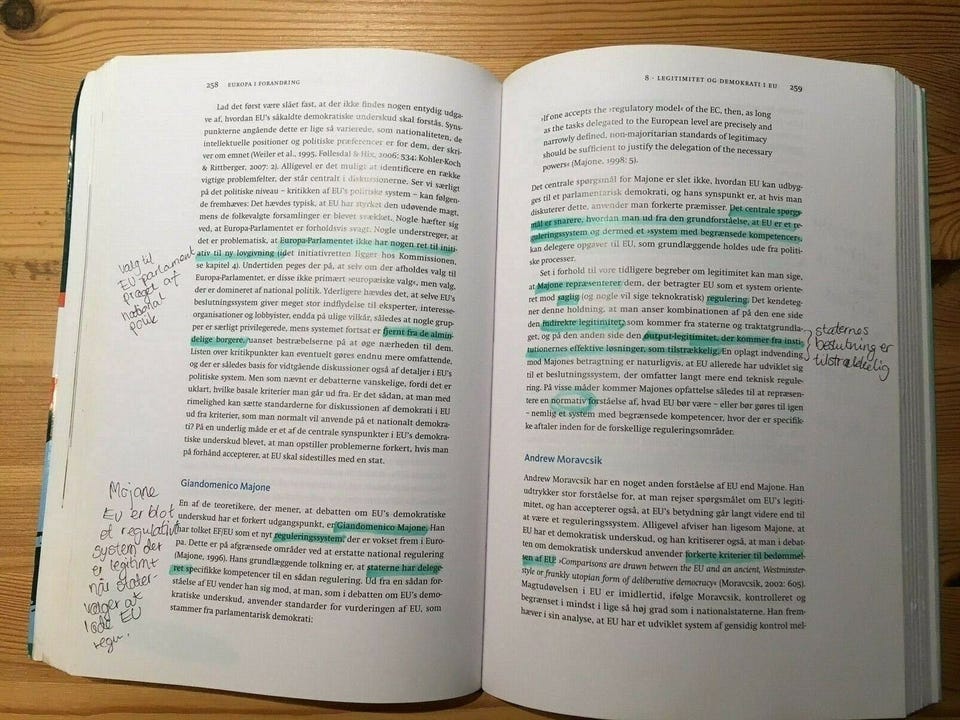 258 · EUROPA I FORANDRING
Lad det først være slået fast, at der ikke findes nogen entydig udga-
ve af, hvordan EU's såkaldte demokratiske underskud skal forstås. Syns-
punkterne angående dette er lige så varierede, som nationaliteten, de
intellektuelle positioner og politiske præferencer er for dem, der skri-
ver om emnet (Weiler et al., 1995, Føllesdal & Hix, 2006: 534; Kohler-Koch
& Rittberger, 2007: 2). Alligevel er det muligt at identificere en række
vigtige problemfelter, der står centralt i diskussionerne. Ser vi særligt
på det politiske niveau – kritikken af EU's politiske system – kan følgen-
de fremhæves: Det hævdes typisk, at EU har styrket den udøvende magt,
mens de folkevalgte forsamlinger er blevet svækket. Nogle hæfter sig
ved, at Europa-Parlamentet er forholdsvis svagt. Nogle understreger, at
det er problematisk, at Europa-Parlamentet ikke har nogen ret til initi-
ativ til ny lovgivning (idet initiativretten ligger hos Kommissionen,
se kapitel 4). Undertiden peges der på, at selv om der afholdes valg til
Europa-Parlamentet, er disse ikke primært ›EU-valg‹, men valg,
der er domineret af national politik. Yderligere hævdes det, at selve EU's
beslutningssystem giver meget stor indflydelse til eksperter, interesse-
organisationer og lobbyister, endda på ulige vilkår, således at nogle grup-
per er særligt privilegerede, mens systemet fortsat er fjernt fra de almin-
delige borgere, uanset bestræbelserne på at øge nærheden til dem.
Listen over kritikpunkter kan eventuelt gøres endnu mere omfattende,
og der er således basis for vidtgående diskussioner også af detaljer i EU's
politiske system. Men som nævnt er debatterne vanskelige, fordi det er
uklart, hvilke basale kriterier man går ud fra. Er det sådan, at man med
rimelighed kan sætte standarderne for diskussionen af demokrati i EU
ud fra kriterier, som man normalt vil anvende på et nationalt demokra-
ti? På en underlig måde er et af de centrale synspunkter i EU's demokra-
tiske underskud blevet, at man opstiller problemerne forkert, hvis man
på forhånd accepterer, at EU skal sidestilles med en stat.
Giandomenico Majone
En af de teoretikere, der mener, at debatten om EU's demokratiske
underskud har et forkert udgangspunkt, er Giandomenico Majone. Han
har tolket EF/EU som et nyt reguleringssystem, der er vokset frem i Euro-
pa. Dette er på afgrænsede områder ved at erstatte national regulering
(Majone, 1996). Hans grundlæggende tolkning er, at staterne har delege-
ret specifikke kompetencer til en sådan regulering. Ud fra en sådan for-
ståelse af EU vender han sig mod, at man, som i debatten om EU's demo-
kratiske underskud, anvender standarder for vurderingen af EU, som
stammer fra parlamentarisk demokrati:
valg til
EU-parlament
præget af
national
politik
Majone
EU er blot
et regulativt
system der
er legitimt
når stater-
vælger at
lade EU
regu.
8 · LEGITIMITET OG DEMOKRATI I EU 259
›If one accepts the ›regulatory model‹ of the EC, then, as long
as the tasks delegated to the European level are precisely and
narrowly defined, non-majoritarian standards of legitimacy
should be sufficient to justify the delegation of the necessary
powers‹ (Majone, 1998: 5).
Det centrale spørgsmål for Majone er slet ikke, hvordan EU kan udbyg-
ges til et parlamentarisk demokrati, og hans synspunkt er, at hvis man
diskuterer dette, anvender man forkerte præmisser. Det centrale spørgs-
mål er snarere, hvordan man ud fra den grundforståelse, at EU er et re-
guleringssystem og dermed et ›system med begrænsede kompetencer‹,
kan delegere opgaver til EU, som grundlæggende holdes ude fra politi-
ske processer.
Set i forhold til vore tidligere begreber om legitimitet kan man sige,
at Majone repræsenterer dem, der betragter EU som et system oriente-
ret mod saglig (og nogle vil sige teknokratisk) regulering. Det kendeteg-
ner denne holdning, at man anser kombinationen af på den ene side
den indirekte legitimitet, som kommer fra staterne og traktatgrundla-
get, og på den anden side den output-legitimitet, der kommer fra insti-
tutionernes effektive løsninger, som tilstrækkelig. En oplagt indvending
mod Majones betragtning er naturligvis, at EU allerede har udviklet sig
til et beslutningssystem, der omfatter langt mere end teknisk regule-
ring. På visse måder kommer Majones opfattelse således til at repræsen-
tere en normativ forståelse af, hvad EU bør være – eller bør gøres til igen
– nemlig et system med begrænsede kompetencer, hvor der er specifik-
ke aftaler inden for de forskellige reguleringsområder.
staternes
beslutning er
tilstrækkelig
Andrew Moravcsik
Andrew Moravcsik har en noget anden forståelse af EU end Majone. Han
udtrykker stor forståelse for, at man rejser spørgsmålet om EU's legiti-
mitet, og han accepterer også, at EU's betydning går langt videre end til
at være et reguleringssystem. Alligevel afviser han ligesom Majone, at
EU har et demokratisk underskud, og han kritiserer også, at man i debat-
ten om demokratisk underskud anvender forkerte kriterier til bedømmel-
sen af EU: ›Comparisons are drawn between the EU and an ancient, Westminster-
style or frankly utopian form of deliberative democracy‹ (Moravcsik, 2002: 605).
Magtudøvelsen i EU er imidlertid, ifølge Moravcsik, kontrolleret og
begrænset i mindst i lige så høj grad som i nationalstaterne. Han frem-
hæver i sin analyse, at EU har et udviklet system af gensidig kontrol mel-